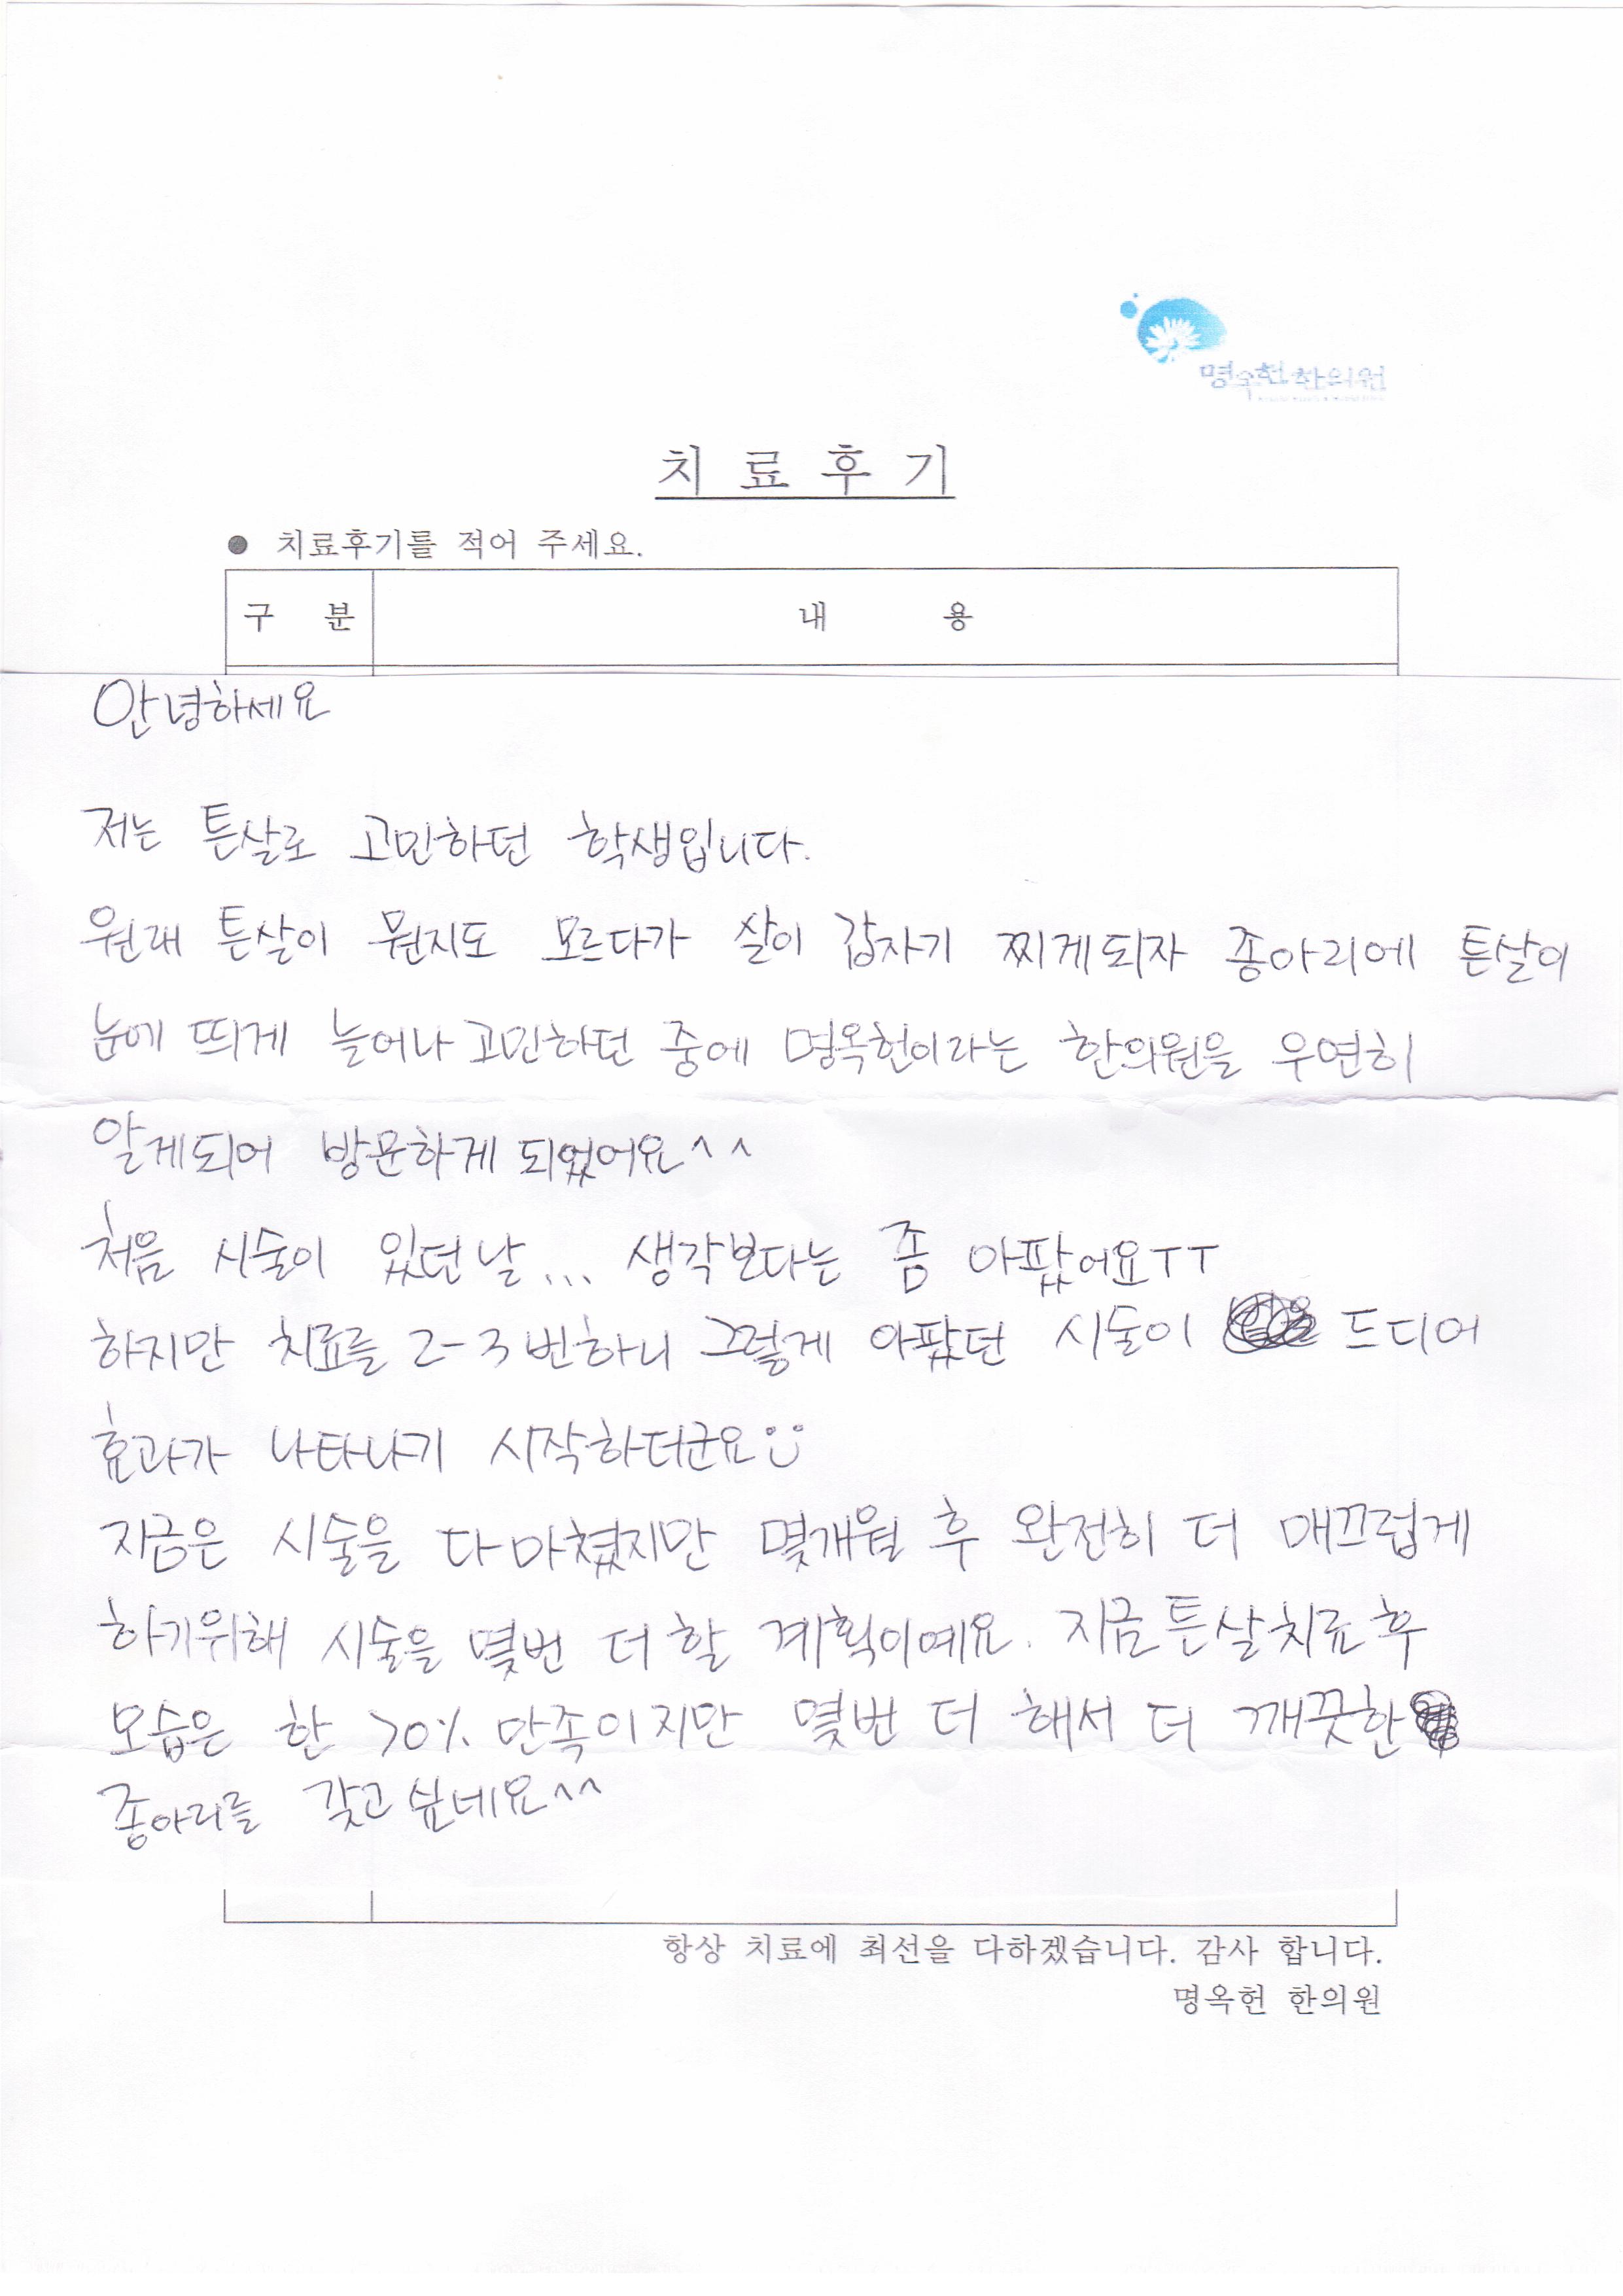 명옥헌한의원
치 료 후 기
● 치료후기를 적어 주세요.
구 분 내 용
안녕하세요
저는 튼살로 고민하던 학생입니다.
원래 튼살이 뭔지도 모르다가 살이 갑자기 찌게되자 종아리에 튼살이
눈에 띄게 늘어나 고민하던 중에 명옥헌이라는 한의원을 우연히
알게되어 방문하게 되었어요^^
처음 시술이 있던날... 생각보다는 좀 아팠어요ㅜㅜ
하지만 치료를 2-3번하니 그렇게 아팠던 시술이 드디어
효과가 나타나기 시작하더군요
지금은 시술을 다 마쳤지만 몇개월 후 완전히 더 매끄럽게
하기위해 시술을 몇번 더 할 계획이예요. 지금 튼살치료 후
모습은 한 70% 만족이지만 몇번 더 해서 더 깨끗한
종아리를 갖고싶네요^^
항상 치료에 최선을 다하겠습니다. 감사 합니다.
명옥헌 한의원